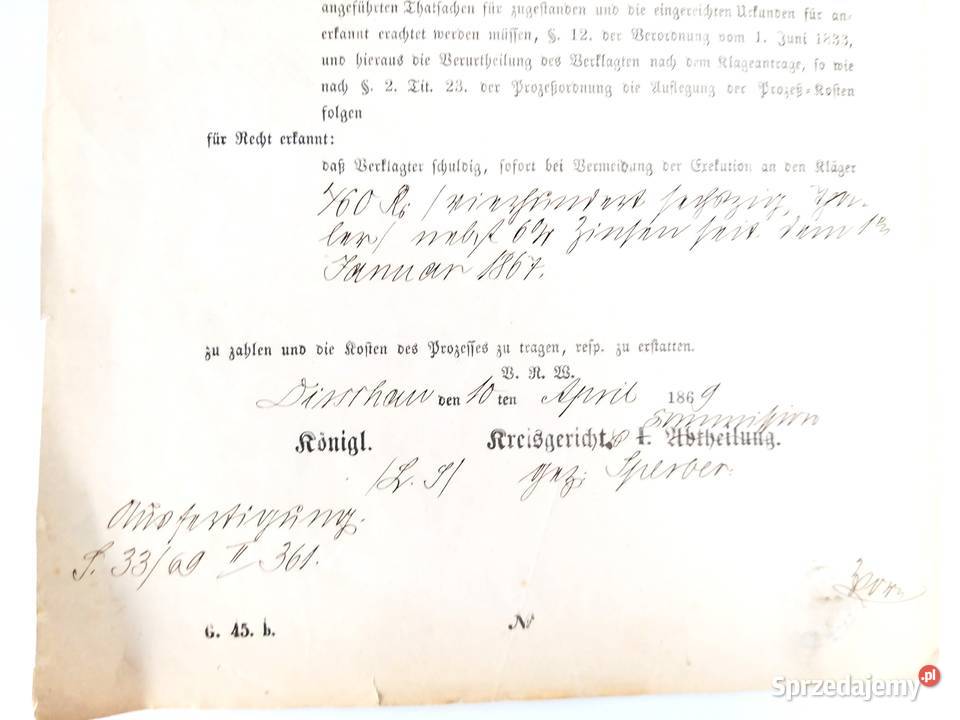 angeführten Thatsachen für zugestanden und die eingereichten Urkunden für an-
erkannt erachtet werden müssen, §. 12. der Verordnung vom 1. Juni 1833,
und hieraus die Verurtheilung des Verklagten nach dem Klageantrage, so wie
nach §. 2. Tit. 23. der Prozeßordnung die Auflegung der Prozeß-Kosten
folgen
für Recht erkannt:
daß Verklagter schuldig, sofort bei Vermeidung der Exekution an den Kläger
460 Rt /vierhundert sechszig Tha-
ler/ nebst 6% Zinsen seit dem 1ten
Januar 1867.
zu zahlen und die Kosten des Prozesses zu tragen, resp. zu erstatten.
V. R. W.
Dirschau den 10 ten April 1869
Commission
Königl. Kreisgericht, I. Abtheilung.
/L. S/ gez: Sperber.
Ausfertigung.
S. 33/69 II 361.
G. 45. b. №
Sprzedajemy.pl